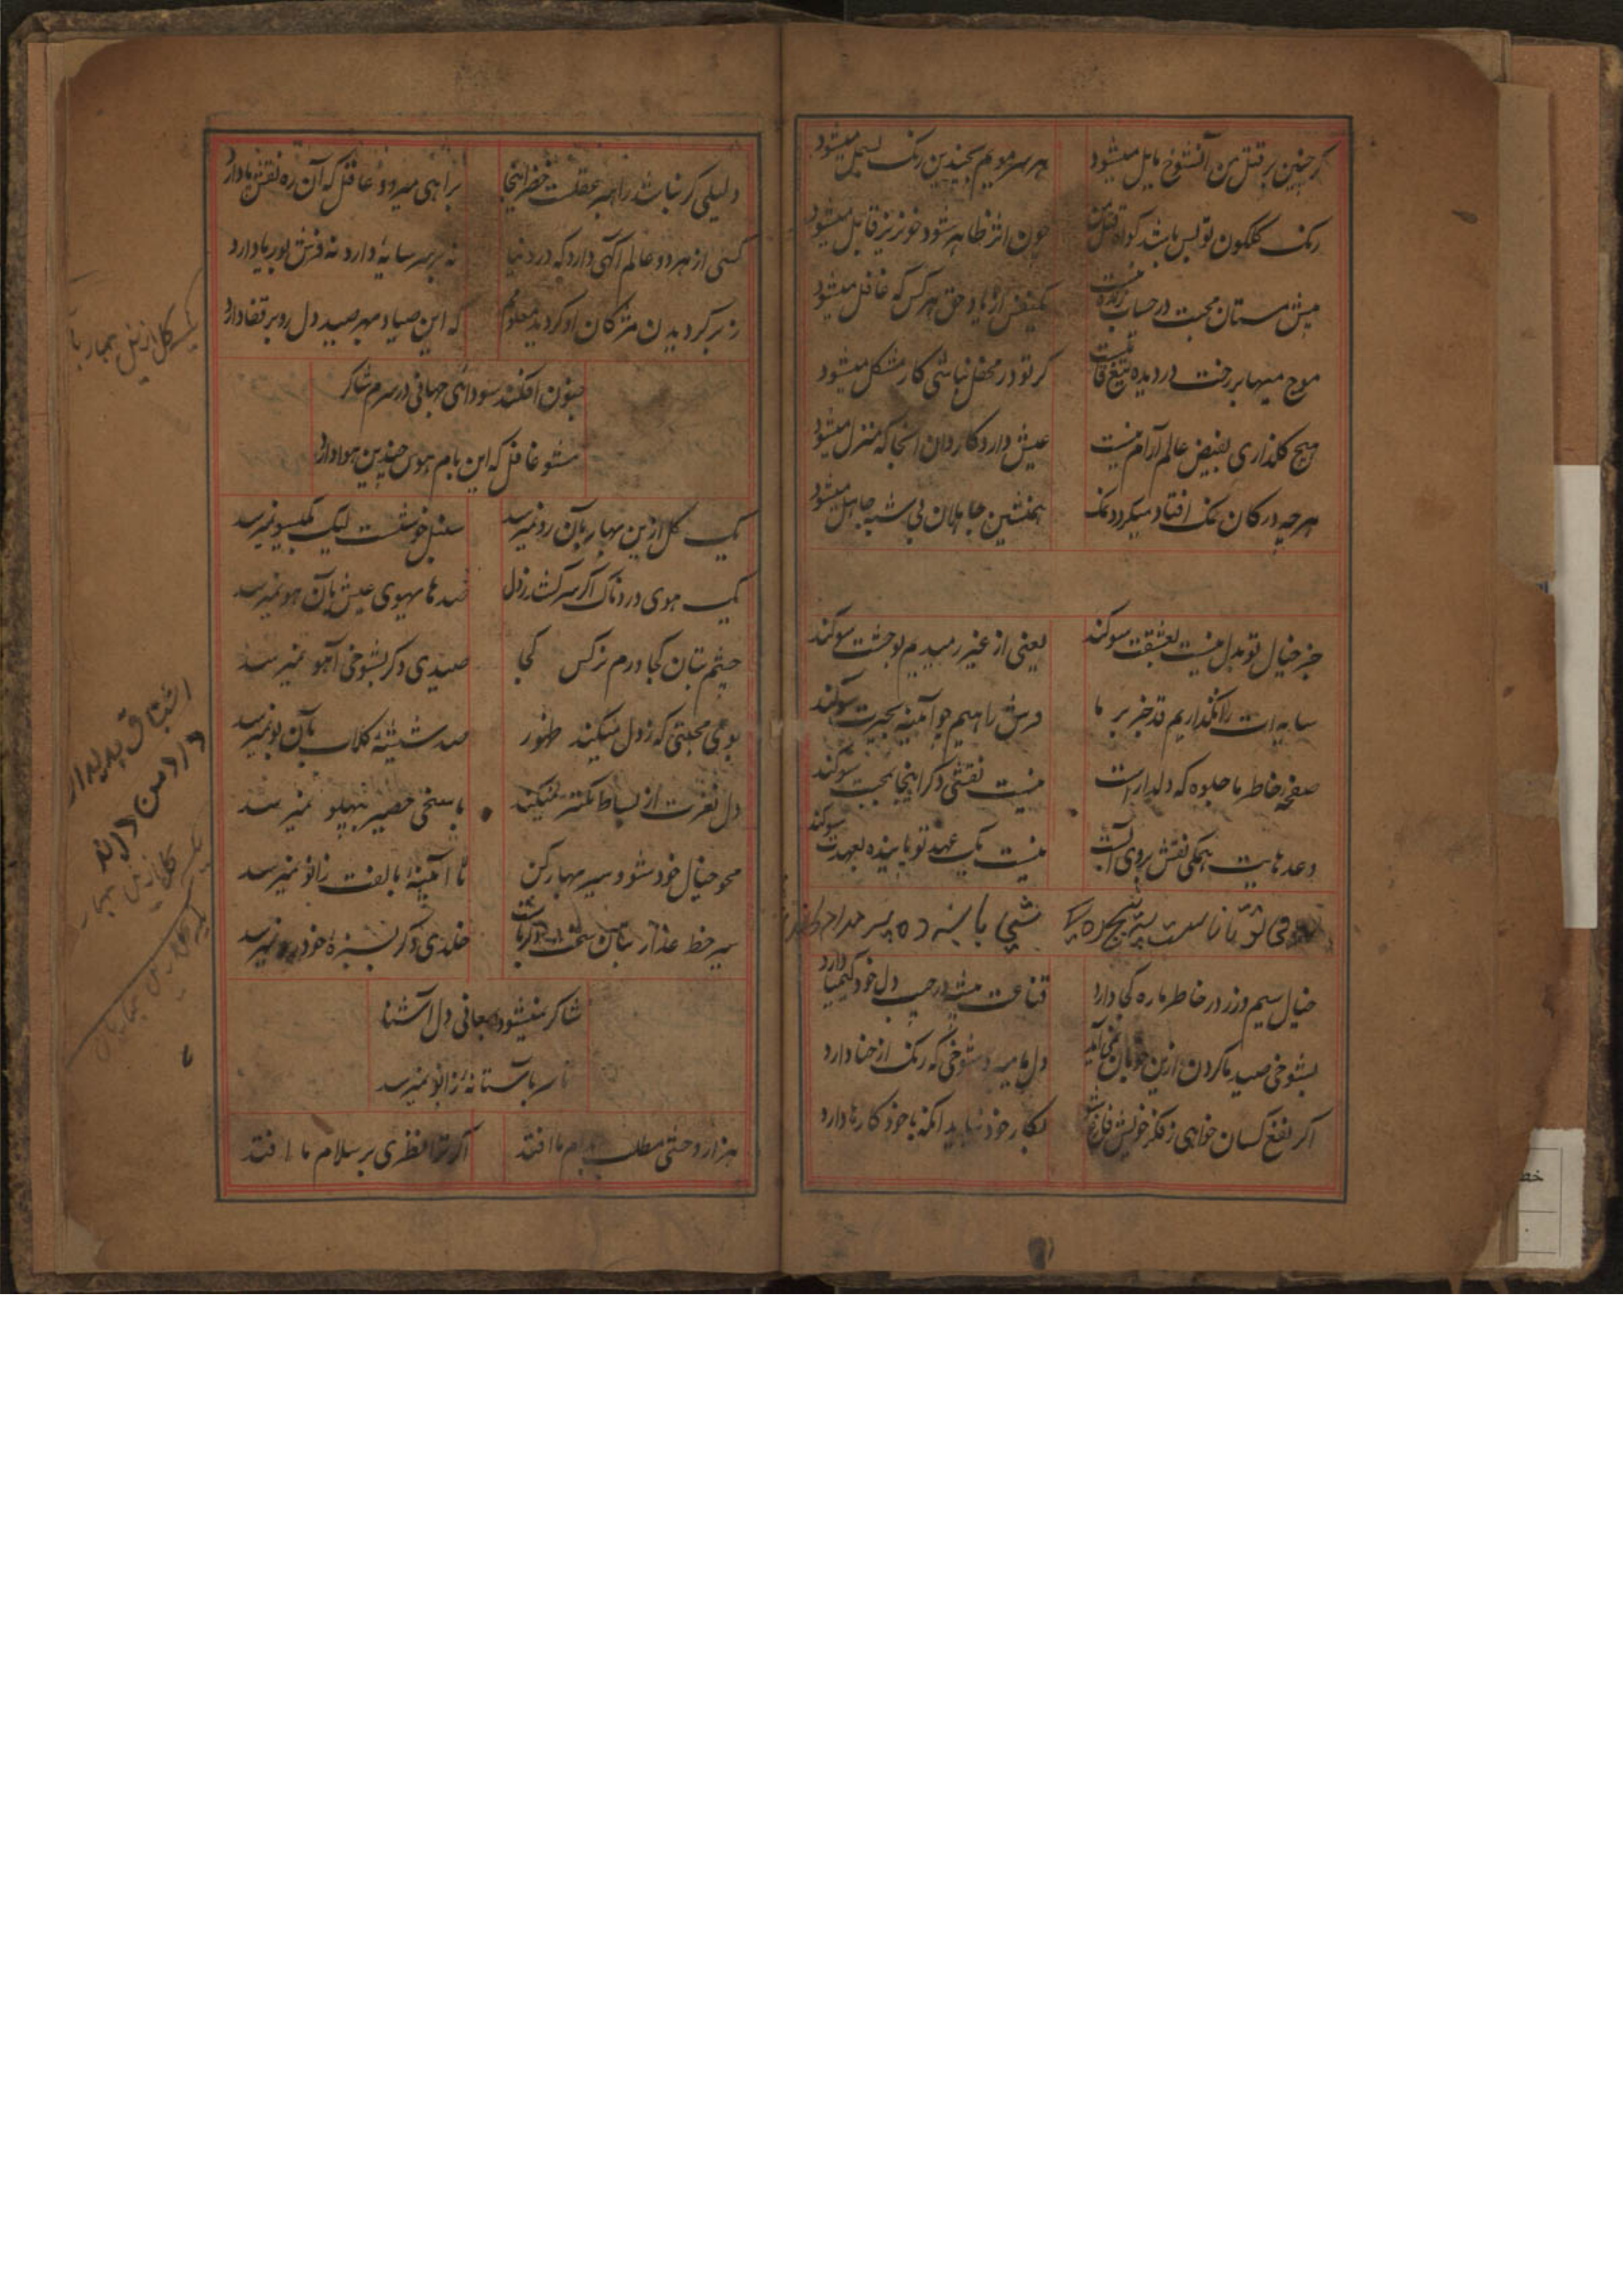 گر چنین بر قتل من آنشوخ مایل میشود هر سر مویم بچندین رنک بسمل میشود
رنک کلکون تو بس باشد کواه قتل من چون اثر ظاهر شود خونریز قاتل میشود
پیش مستان محبت در حساب زنده نیست یکنفس از یاد حق هر کس که غافل میشود
موج میها بر رخت در دیده تیغ قاتلست کر تو در محفل نباشی کار مشکل میشود
هیچ کلذاری بفیض عالم آرام نیست عیش دارد کاروان آنجا که منزل میشود
هر چه در کان نمک افتاد میکردد نمک همنشین جاهلان بی شبه جاهل میشود
جز خیال تو بدل نیست بعشقت سوکند یعنی از غیر رمیدیم بوحشت سوکند
سایه ات را نکذاریم قدم بر ما فرش راهیم چو آئینه بحیرت سوکند
صفحهٔ خاطر ما جلوه که دلدار است نیست نقشی دکر اینجا بمحبت سوکند
وعدهایت همکی نقش بروی آبست نیست یک عهد تو پاینده بعهدت سوکند
خیال سیم و زر در خاطر ما ره کجا دارد قناعت پیشه در جیب دل خود کیمیا دارد
بشوخی صید ما کردن ازین خوبان نمی آید دل ما میبرد شوخی که رنک از حنا دارد
اکر نفع کسان خواهی ز فکر خویش فارغ باش بکار خود نیاید آنکه با خود کارها دارد
دلیلی کر نباشد راهبر عقلت خضر اینجا براهی میرود غافل که آن ره نقش پا دارد
کسی از هر دو عالم آکهی دارد که در دنیا نه بر سر سایهٔ دارد نه فرش بوریا دارد
ز بر کردیدن مژکان او کردید معلومم که این صیاد بهر صید دل رو بر قفا دارد
جنون افکند سودای جهانی در سرم شاکر
مشو غافل که این بام هوس چندین هوا دارد
یک کل ازین بهار بآن رو نمیرسد سنبل خوشست لیک بکیسو نمیرسد
یک هوی دردناک اکر سر کشد ز دل صد های هوی عیش بآن هو نمیرسد
چشم بتان کجا و رم نرکس کجا صیدی دکر بشوخی آهو نمیرسد
بوی محبتی که ز دل میکند ظهور صد شیشهٔ کلاب بآن بو نمیرسد
دل نفرت از بساط تکبر نمیکند تا سختی حصیر بپهلو نمیرسد
محو خیال خود شو و سیر بهار کن تا آئینه بالفت زانو نمیرسد
سیر خط عذار بتان سخت دلرباست خلدی دکر بسبزهٔ خودرو نمیرسد
شاکر نمیشود بمعانی دل آشنا
تا سر بآستانهٔ زانو نمیرسد
هزار وحشی مطلب بدام ما افتد اکر ترا نظری بر سلام ما افتد
یک کل ازین بهار بآ
اشتیاق بدیدار